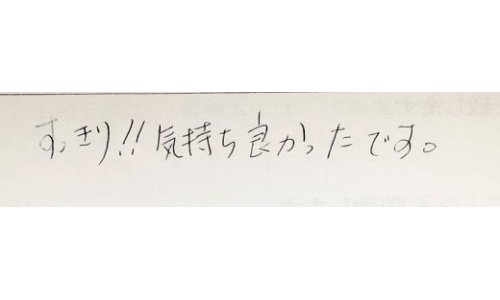 すっきり!!気持ち良かったです。